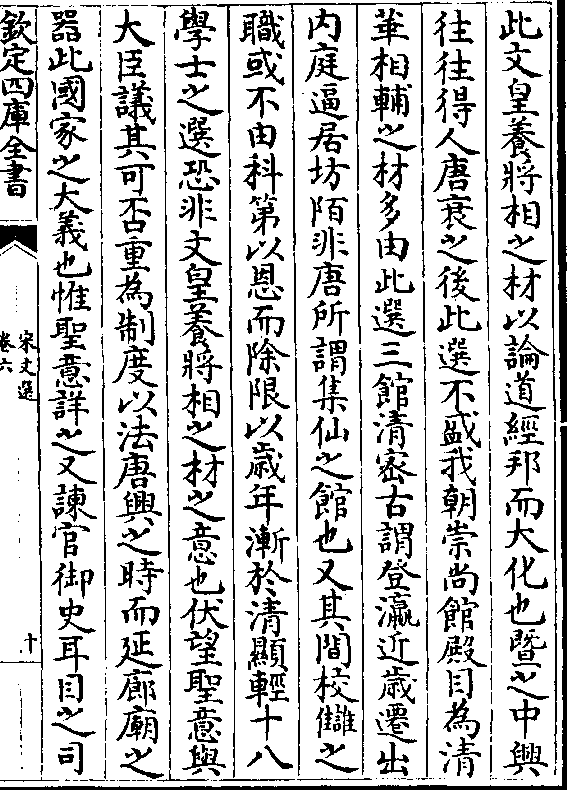 此文皇養將相之材以論道經邦而大化也暨之中興
往往得人唐衰之後此選不盛我朝崇尚館殿目為清
華相輔之材多由此選三館清宻古謂登瀛近歳遷出
内庭逼居坊陌非唐所謂集仙之館也又其間校讎之
職或不由科第以恩而除限以歳年漸於清顯輕十八
學士之選恐非文皇養將相之材之意也伏望聖意與
大臣議其可否重為制度以法唐興之時而延廊廟之
器此國家之大義也惟聖意詳之又諫官御史耳目之司
欽定四庫全書
宋文選
卷六
十